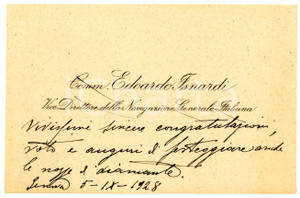 Comm. Edoardo Isnardi
Vice Direttore della Navigazione Generale Italiana
Vivissime sincere congratulazioni,
voto e auguri di festeggiare anche
le nozze di diamante.
Genova 5-IX-1928